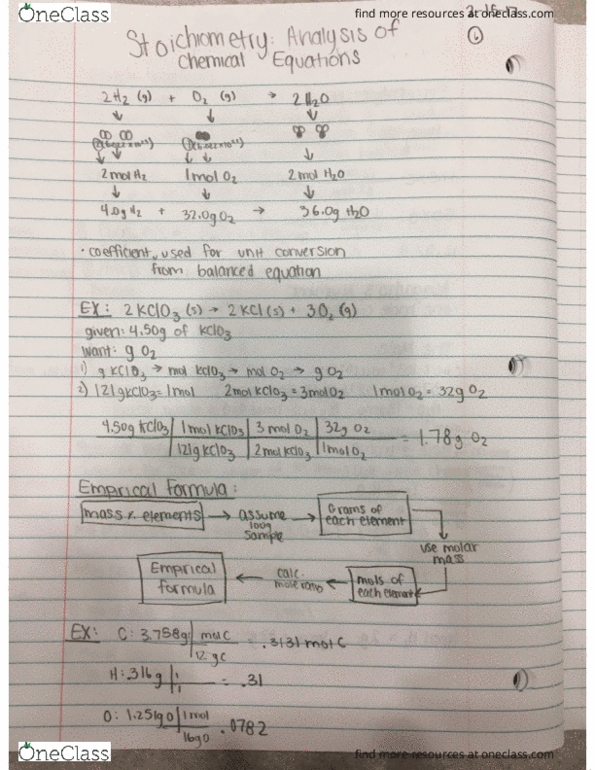 OneClass
find more resources at oneclass.com
6
Stoichiometry: Analysis of
Chemical Equations
2 H₂ (g) + O₂ (g) → 2 H₂O
2 mol H₂ 1 mol O₂ 2 mol H₂O
4.0g H₂ + 32.0g O₂ → 36.0g H₂O
• coefficient used for unit conversion
from balanced equation
EX: 2 KClO₃ (s) → 2 KCl (s) + 3 O₂ (g)
given: 4.50g of KClO₃
want: g O₂
1) g KClO₃ → mol KClO₃ → mol O₂ → g O₂
2) 121g KClO₃ = 1mol 2mol KClO₃ = 3mol O₂ 1mol O₂ = 32g O₂
4.50g KClO₃ | 1mol KClO₃ | 3 mol O₂ | 32g O₂ = 1.78g O₂
121g KClO₃ | 2mol KClO₃ | 1mol O₂
Empirical Formula:
mass % elements → assume 100g sample → Grams of each element
use molar
mass
Empirical formula ← calc. mole ratio ← mols of each element
EX: C: 3.758g | mol C = .3131 mol C
12 g C
H: .316g | 1 = .31
1
O: 1.251g O | 1mol .0782
16g O
OneClass
find more resources at oneclass.com